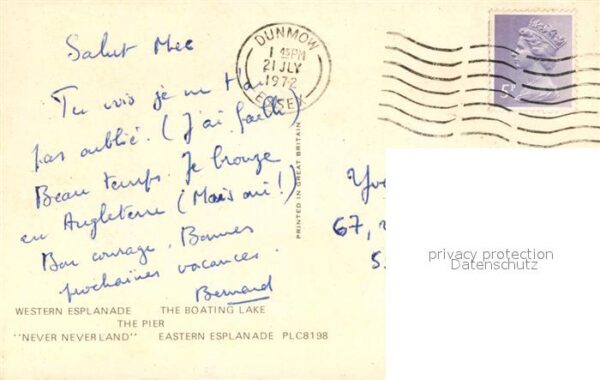 Salut Mec
DUNMOW
1 45PM
21 JLY
1972
ESSEX
Tu vois je ne t'ai
pas oublié. (J'ai failli)
Beau temps. Je bronze
en Angleterre (Mais oui!)
Bon courage. Bonnes
prochaines vacances.
Bernard
PRINTED IN GREAT BRITAIN
Yve
67,
5.
privacy protection
Datenschutz
WESTERN ESPLANADE THE BOATING LAKE
THE PIER
"NEVER NEVERLAND" EASTERN ESPLANADE PLC8198